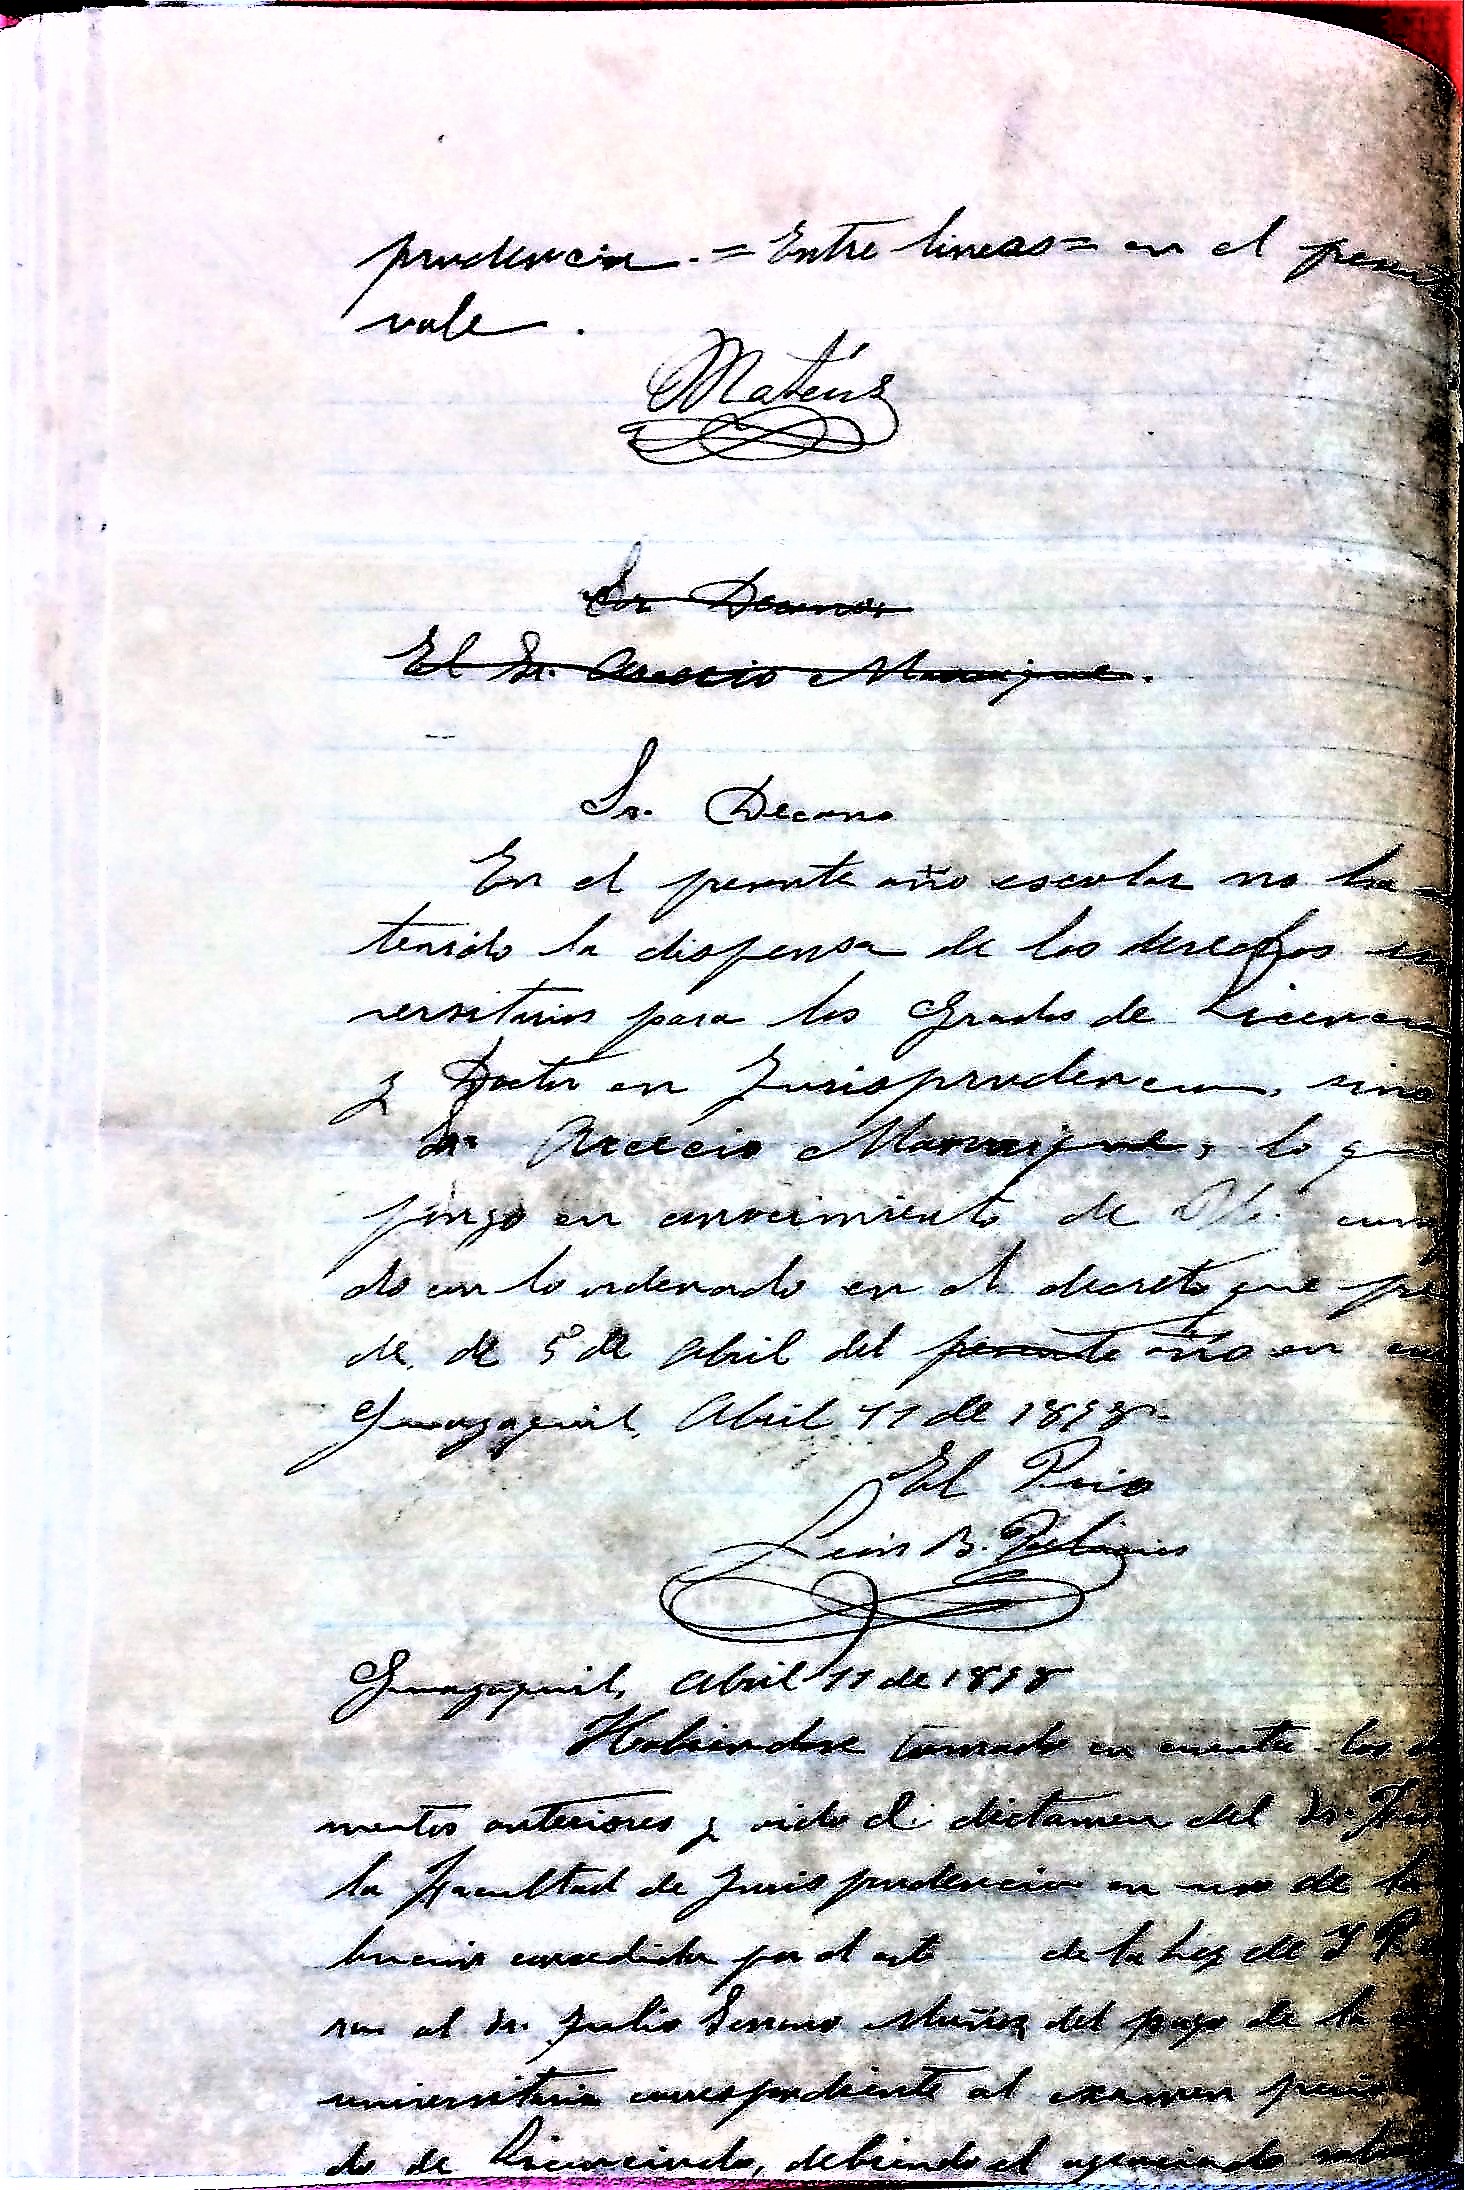 prudencia. = Entre lineas = en el presente
vale.
Mateus
Sor Decano
El Sr. Manrique.
Sr. Decano
En el presente año escolar no ha
tenido la dispensa de los derechos
versitarios para los Grados de Licencia
y Doctor en Jurisprudencia, sino
Sr. Manrique, lo que
pongo en conocimiento de Ud.
do con lo ordenado en el decreto que pre
de, de 5 de Abril del presente año en
Guayaquil, Abril 11 de 1898.
El Prio
León B. Palacios
Guayaquil, Abril 11 de 1898
Habiendose tomado en cuenta los
mentos anteriores y oido el dictamen del Sr.
la Facultad de Jurisprudencia en uso de la
bucion concedida por el art de la Ley de I P
rar al Sr. Julio Serrano Muñoz del pago de la
universitaria correspondiente al examen previo
do de Licenciado, debiendo el agraciado